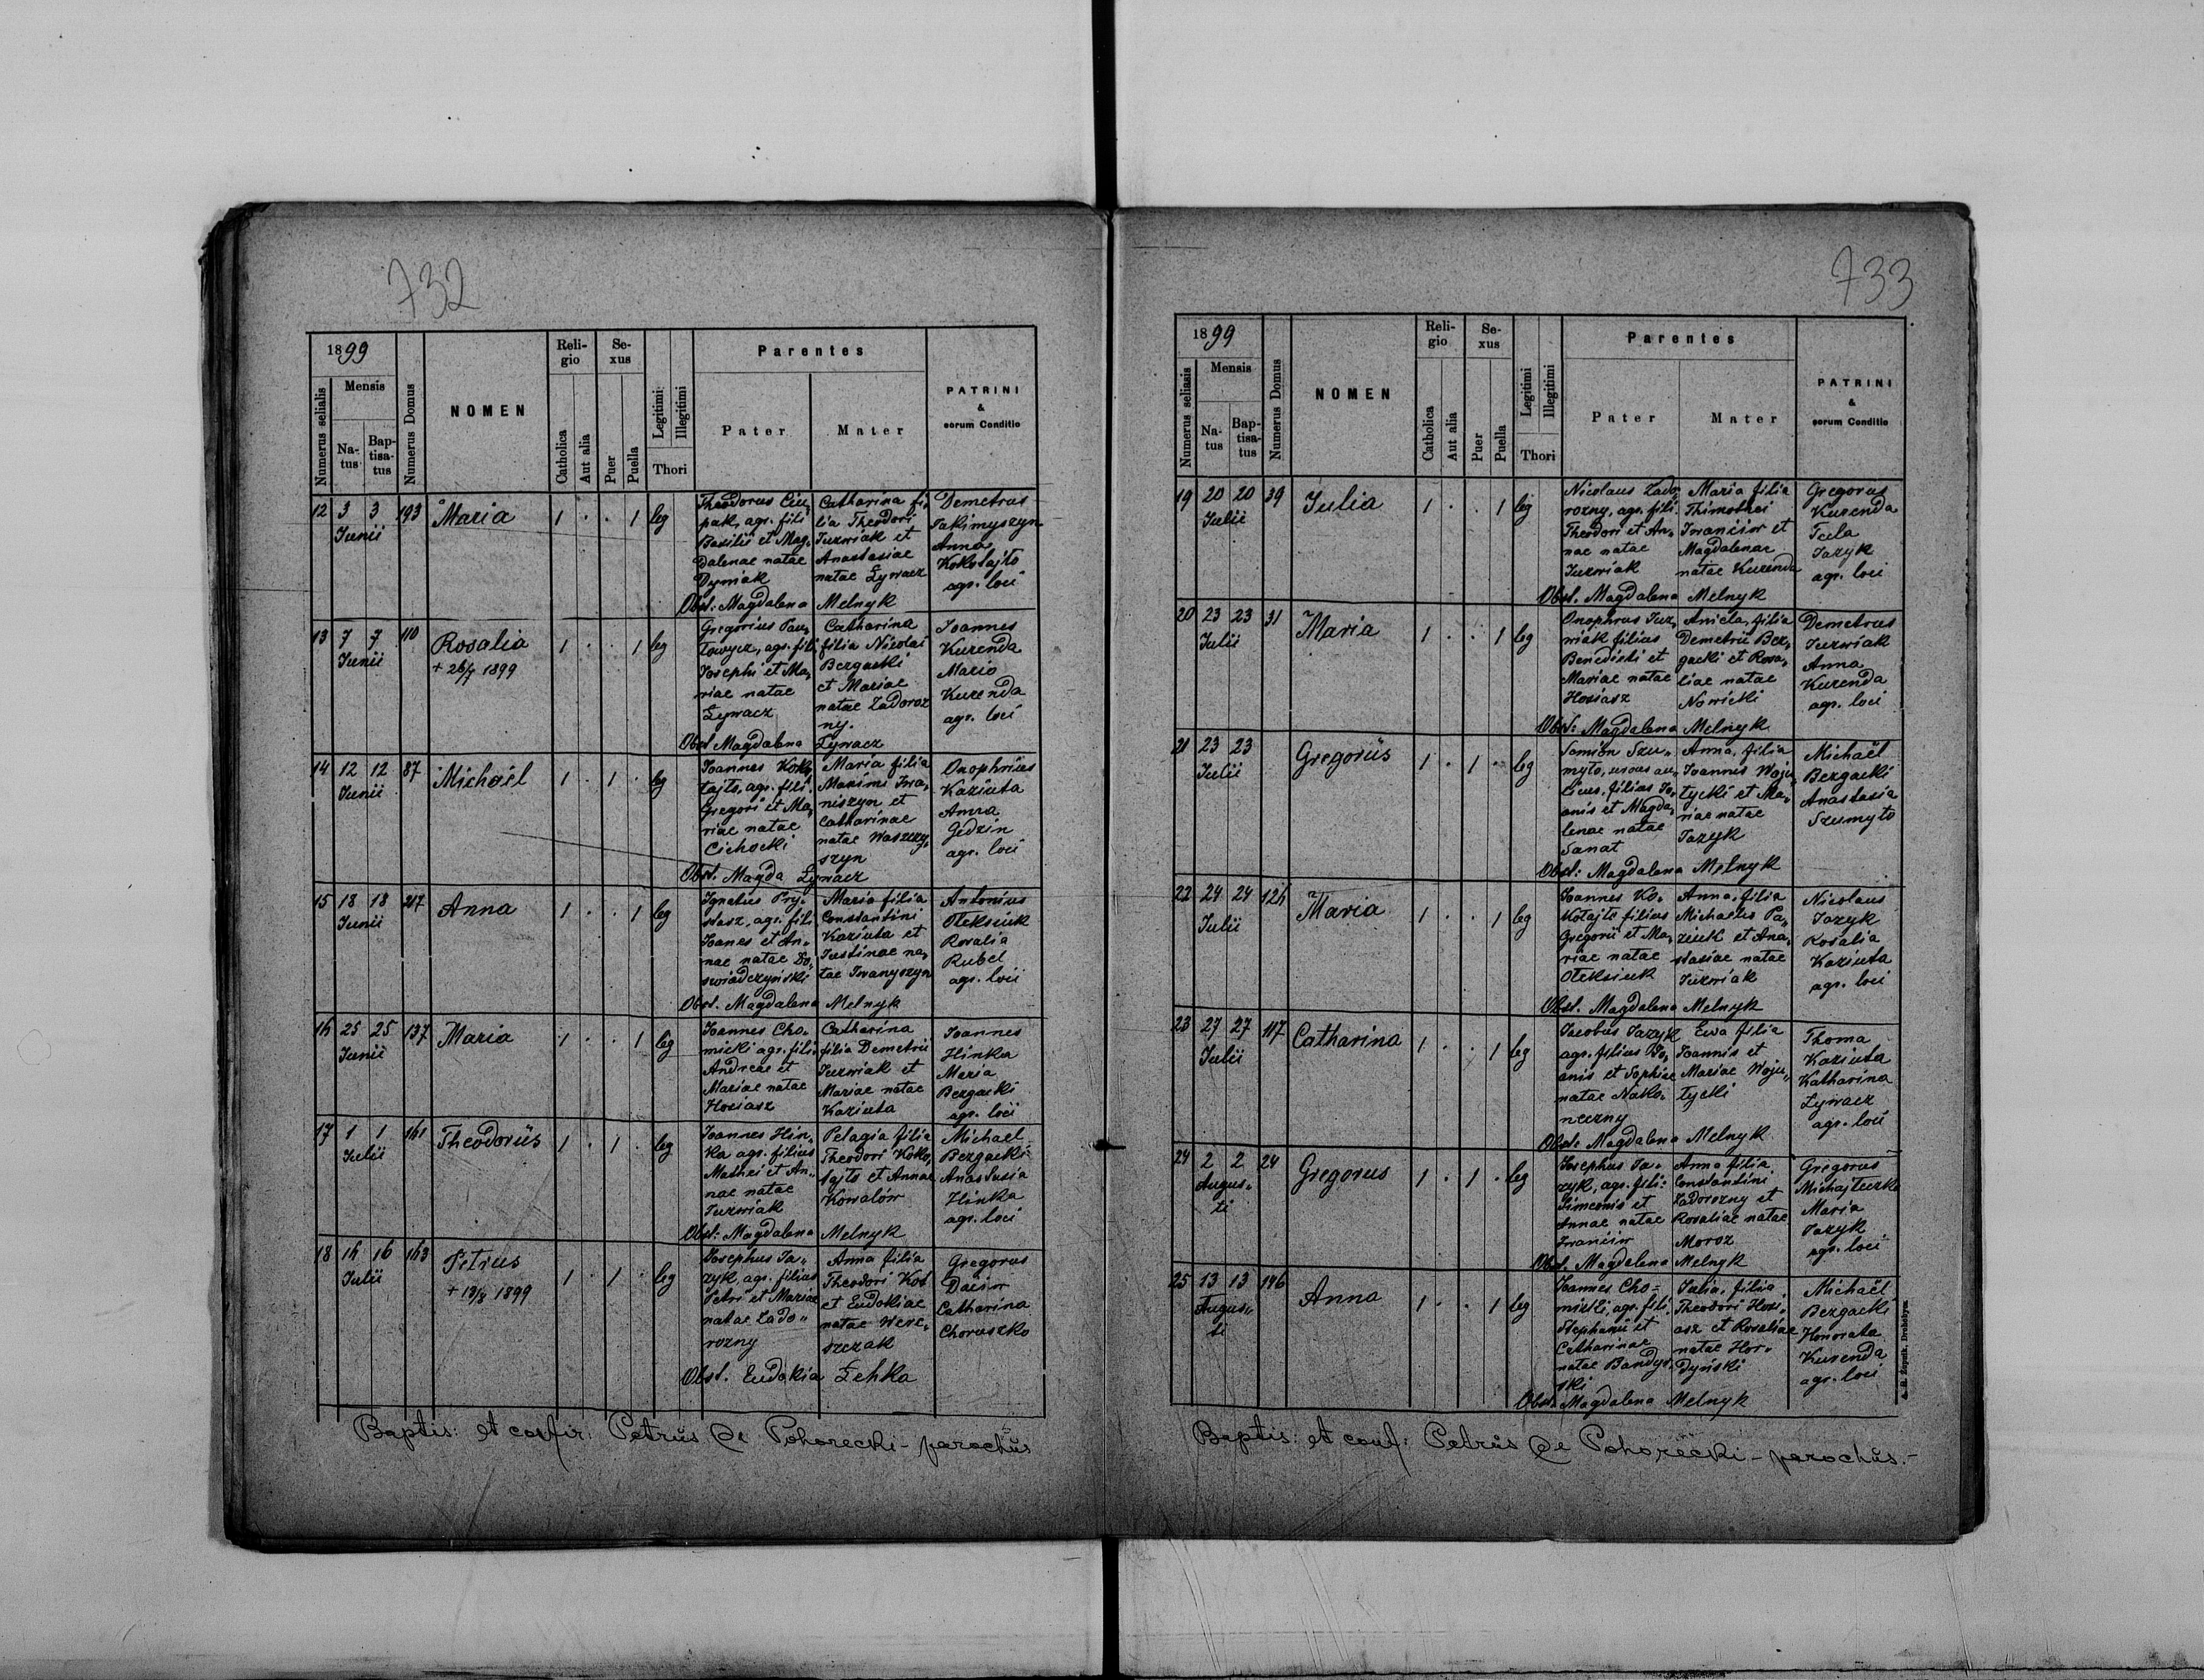 732
1899
Numerus serialis
Mensis
Na-
tus
Bap-
tisa-
tus
Numerus Domus
NOMEN
Reli-
gio
Catholica
Aut alia
Se-
xus
Puer
Puella
Legitimi
Illegitimi
Thori
Parentes
Pater
Mater
PATRINI
&
eorum Conditio
12 3 3 193 Maria 1 . . 1 leg
Junii
Theodorus Ciu-
pak, agr. fili
Basilii et Mag-
dalenae natae
Dyniak
Catharina fi-
lia Theodori
Jurwiak et
Anastasiae
natae Żywacz
Demetrus
Jakimyszyn
Anna
Kokotajło
agr. loci
Obst: Magdalena Melnyk
13 7 7 110 Rosalia 1 . . 1 leg
Junii
+ 26/7 1899
Gregorius Paw-
łowycz, agr. fili
Josephi et Ma-
riae natae
Żywacz
Catharina
filia Nicolai
Bezgacki
et Mariae
natae Zadoroz
ny.
Joannes
Kurenda
Mario
Kurenda
agr. loci
Obst Magdalena Żywacz
14 12 12 87 Michaël 1 . 1 . leg
Junii
Joannes Koko-
tajło, agr. fili.
Gregori et Ma-
riae natae
Cichocki
Maria filia
Maximi Iwa-
niszyn et
Catharinae
natae Waszczy-
szyn
Onophrius
Kaziuta
Anna
Gedzin
agr. loci
Obst. Magda Żywacz
15 18 18 217 Anna 1 . . 1 leg
Junii
Ignatus Pry-
stasz, agr. fili
Joanes et An-
nae natae Do-
swiadczyński
Maria filia
Constantini
Kaziuta et
Justinae na-
tae Iwanyszyn
Antonius
Oleksiuk
Rosalia
Rubel
agr. locii
Obst. Magdalena Melnyk
16 25 25 137 Maria 1 . . 1 leg
Junii
Joannes Cho-
micki agr. fili
Andreae et
Mariae natae
Hosiasz
Catharina
filia Demetrii
Jurwiak et
Mariae natae
Kaziuta
Joannes
Hinka
Maria
Bezgacki
agr. locii
17 1 1 161 Theodorüs 1 . 1 . leg
Julii
Joannes Hin-
ka agr. filius
Mathei et An-
nae natae
Jurwiak
Pelagia filia
Theodori Koko-
tajło et Annae
Kowalów
Michael
Bezgacki
Anastasia
Hinka
agr. loci
Obst: Magdalena Melnyk
18 16 16 163 Petrus 1 . 1 . leg
Julii
+ 18/8 1899
Josephus Ja-
zyk, agr. filius
Petri et Mariae
natae Zado-
rozny
Anna filia
Theodori Kob
et Eudokiae
natae Were-
szczak
Gregorus
Daciw
Catharina
Choruszko
Obst. Eudokia Żehka
Baptis: et confir: Petrüs de Pohorecki - parochüs
733
1899
Numerus seliasis
Mensis
Na-
tus
Bap-
tisa-
tus
Numerus Domus
NOMEN
Reli-
gio
Catholica
Aut alia
Se-
xus
Puer
Puella
Legitimi
Illegitimi
Thori
Parentes
Pater
Mater
PATRINI
&
eorum Conditio
19 20 20 39 Julia 1 . . 1 leg
Julii
Nicolaus Zado-
rozny, agr. fili.
Theodori et An-
nae natae
Jurwiak
Maria filia
Thimothei
Iwanciw et
Magdalenae
natae Kurenda
Gregorus
Kurenda
Tecla
Jazyk
agr. loci
Obst. Magdalena Melnyk
20 23 23 31 Maria 1 . . 1 leg
Julii
Onophrus Jur-
wiak filius
Benedicti et
Mariae natae
Hosiasz
Aniela, filia
Demetrii Bez-
gacki et Rosa-
liae natae
Nowicki
Demetrus
Jurwiak
Anna
Kurenda
agr. loci
Obst: Magdalena Melnyk
21 23 23 Gregorüs 1 . 1 . leg
Julii
Semion Szu-
myło, servus au-
licus, filius Jo-
anis et Magda-
lenae natae
Sanat
Anna, filia
Joannis Woju-
tycki et Ma-
riae natae
Jazyk
Michaël
Bezgacki
Anastasia
Szumyło
Obst: Magdalena Melnyk
22 24 24 126 Maria 1 . . 1 leg
Julii
Joannes Ko-
kotajło filius
Gregorii et Ma-
riae natae
Oleksiuk
Anna, filia
Michaelis Pa-
ziuk et Ana-
stasiae natae
Jurwiak
Nicolaus
Jazyk
Rosalia
Kaziuta
agr. loci
Obst. Magdalena Melnyk
23 27 27 117 Catharina 1 . . 1 leg
Julii
Jacobus Jazyk
agr. filius Jo-
anis et Sophiae
natae Nako-
neczny
Ewa filia
Joannis et
Mariae Woju-
tycki
Thoma
Kaziuta
Katharina
Żywacz
agr. loci
Obst: Magdalena Melnyk
24 2 2 24 Gregorus 1 . 1 . leg
Augus-
ti
Josephus Ja-
zyk, agr. fili:
Simeonis et
Annae natae
Iwanciw
Anna filia
Constantini
Zadorozny et
Rosaliae natae
Moroz
Gregorus
Michajleczko
Maria
Jazyk
agr. loci
Obst. Magdalena Melnyk
25 13 13 196 Anna 1 . . 1 leg
Augus-
ti
Joannes Cho-
micki, agr. fili.
Stephanii et
Catharinae
natae Bandyr-
ski
Julia, filia
Theodori Hosi-
asz et Rosaliae
natae Hor-
dyński
Michaël
Bezgacki
Honorata
Kurenda
agr. loci
Obst. Magdalena Melnyk
Baptis: et conf: Petrüs de Pohorecki - parochüs.-